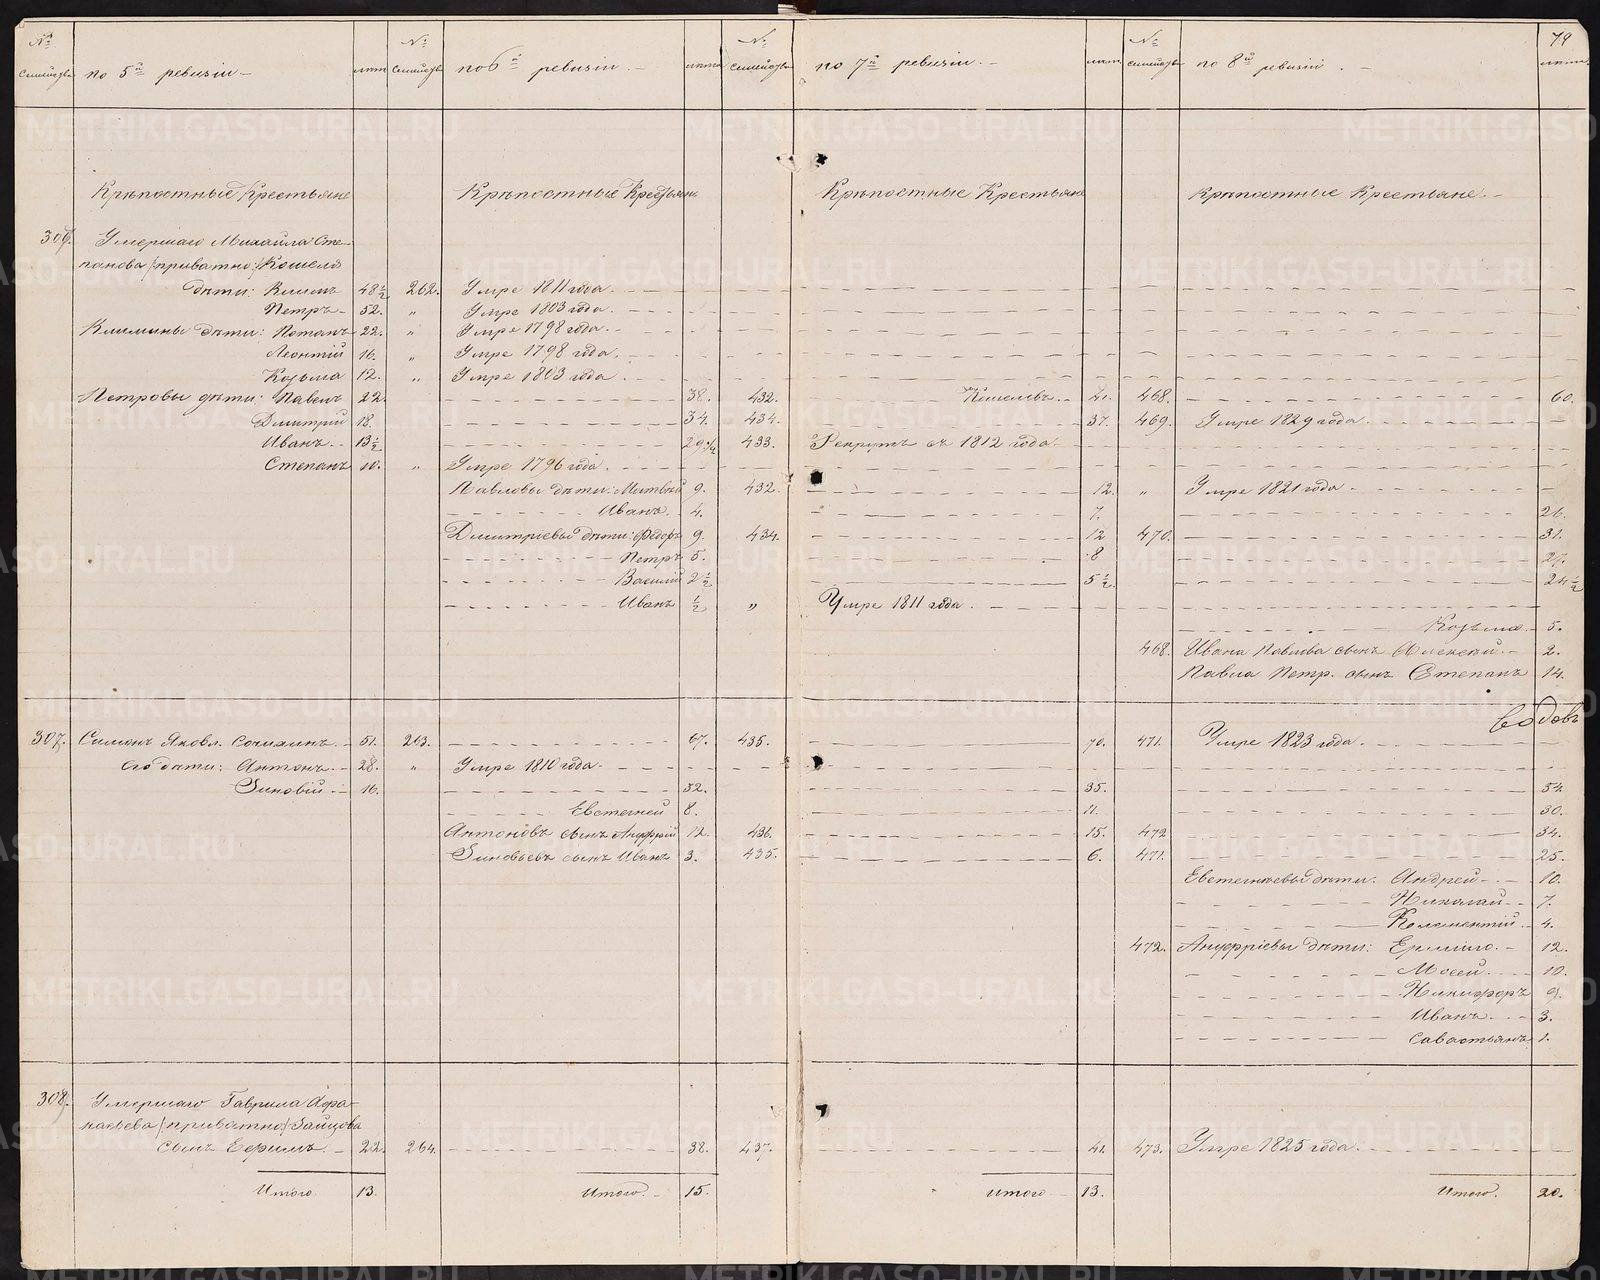 79
№ семействъ по 5й ревизіи лѣта № семействъ по 6й ревизіи лѣта № семействъ по 7й ревизіи лѣта № семействъ по 8й ревизіи лѣта
Крѣпостные Крестьяне Крѣпостные Крестьяне Крѣпостные Крестьяне Крѣпостные Крестьяне
306. Умершаго Михайла Сте-
панова /приватно/ Кошеля
дѣти: Климъ 48½ 262. Умре 1811 года.
Петръ 52. „ Умре 1803 года.
Климины дѣти: Потапъ 22. „ Умре 1798 года.
Леонтій 16. „ Умре 1798 года.
Козьма 12. „ Умре 1803 года.
Петровы дѣти: Павелъ 22. 38. 432. Кошелевъ 41. 468. 60.
Дмитрій 18. 34. 434. 37. 469. Умре 1829 года.
Иванъ 13½ 29½ 433. Рекрутъ съ 1812 года.
Степанъ 10. „ Умре 1796 года.
Павловы дѣти: Матвей 9. 432. 12. „ Умре 1821 года
Иванъ 4. 7. 26.
Дмитріевы дѣти: Федоръ 9. 434. 12 470. 31.
Петръ 5. 8 27.
Василій 2½ 5½ 24½
Иванъ ½ „ Умре 1811 года.
Козьма 5.
468. Ивана Павлова сынъ Алексей 2.
Павла Петр. сынъ Степанъ 14.
307. Симонъ Яковл. Сочихинъ 51. 263. 67. 435. 70. 471. Умре 1823 года.
Его дѣти: Антонъ 28. „ Умре 1810 года.
Зиновій 16. 32. 35. 54.
Евстегней 8. 11. 30.
Антоновъ сынъ Ануфрій 12. 436. 15. 472 34.
Зиновьевъ сынъ Иванъ 3. 435. 6. 471. 25.
Евстегнеевы дѣти: Андрей 10.
Николай 7.
Клементій 4.
472. Ануфріевы дѣти: Ермило 12.
Мосей 10.
Никифоръ 9.
Иванъ 3.
Савастьянъ 1.
308. Умершаго Гаврила Афа-
насьева /приватно/ Зайцова
сынъ Ефимъ 22. 264. 38. 437. 41. 473. Умре 1825 года.
Итого 13. Итого 15. Итого 13. Итого. 20.
METRIKI.GASO-URAL.RU